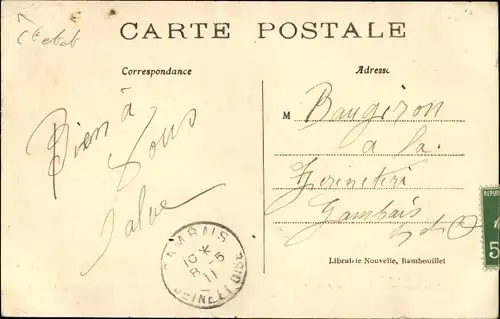 CARTE POSTALE
Correspondance
Adresse
Bien à
Vous
M Baugiron
a la
Gambais
S et O
Librairie Nouvelle, Rambouillet
GAMBAIS
10 *
8 - 5
11
SEINE ET OISE
5